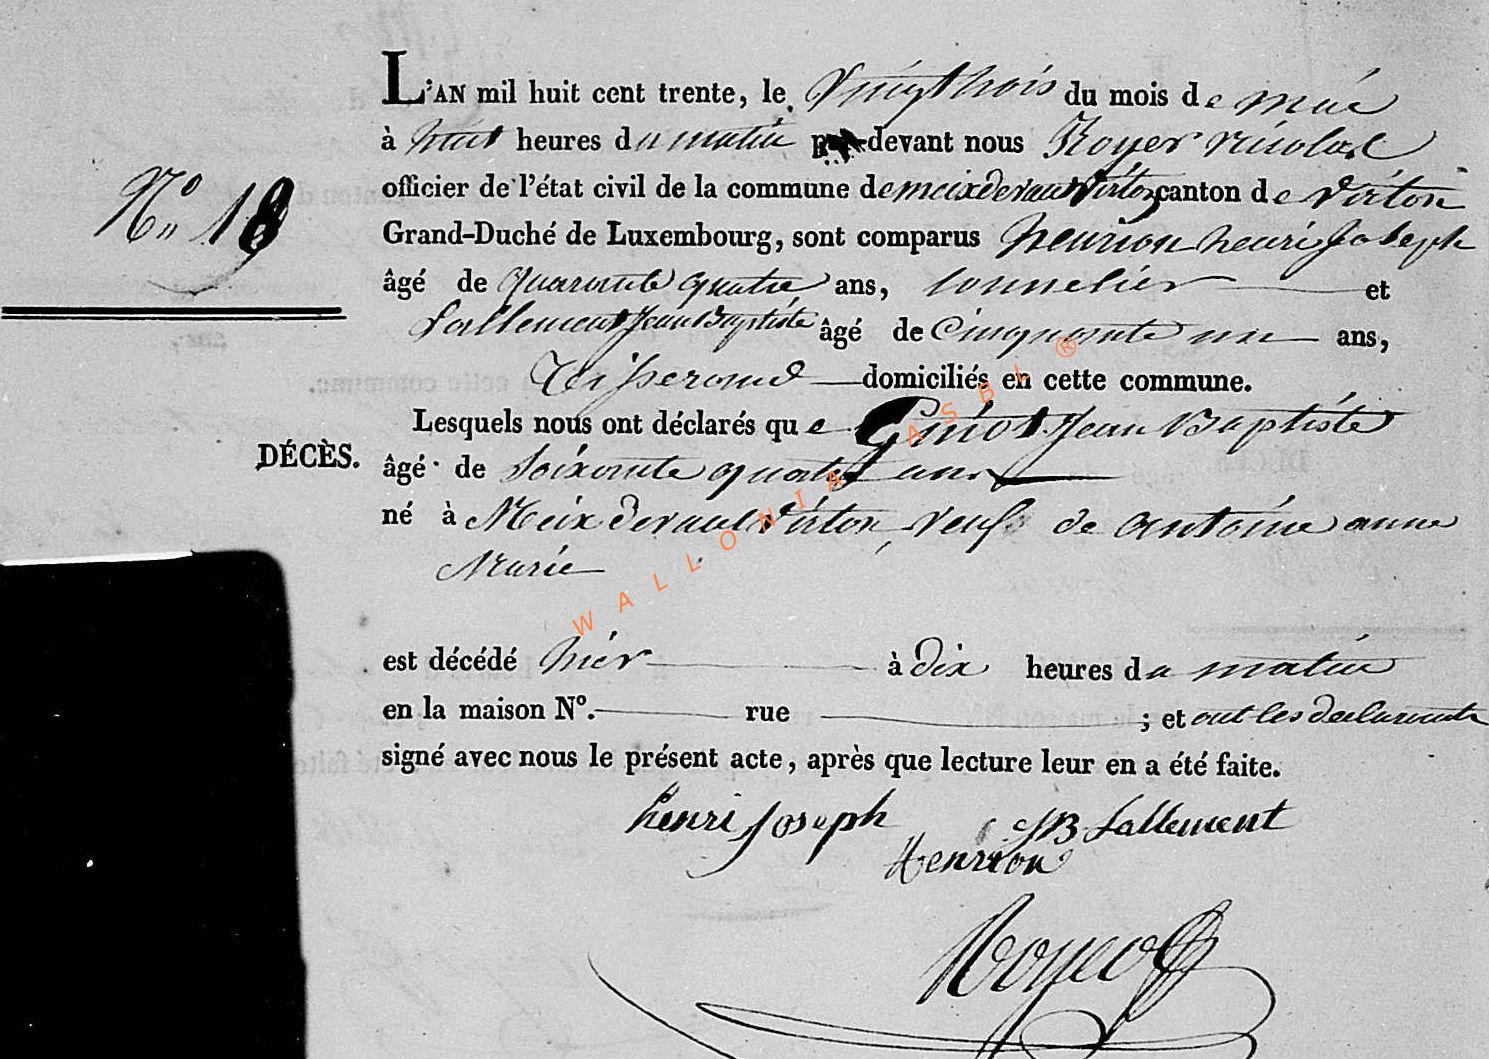 L'AN mil huit cent trente, le vingt trois du mois de mai
à huit heures du matin par-devant nous Royer nicolas
officier de l'état civil de la commune de meix devant Virton canton de Virton
N° 18
Grand-Duché de Luxembourg, sont comparus henrion henri Joseph
âgé de quarante quatre ans, tonnelier et
Lallement Jean Baptiste âgé de Cinquante un ans,
Tisserand domiciliés en cette commune.
Lesquels nous ont déclarés que Guiot Jean Baptiste
DÉCÈS.
âgé de Soixante quatre ans
né à Meix devant Virton, veuf de antoine anne
Marie
est décédé hier à dix heures du matin
en la maison N°. rue ; et ont les declarants
signé avec nous le présent acte, après que lecture leur en a été faite.
henri Joseph JB Lallement
henrion
Royer
WALLONIA ASBL ®